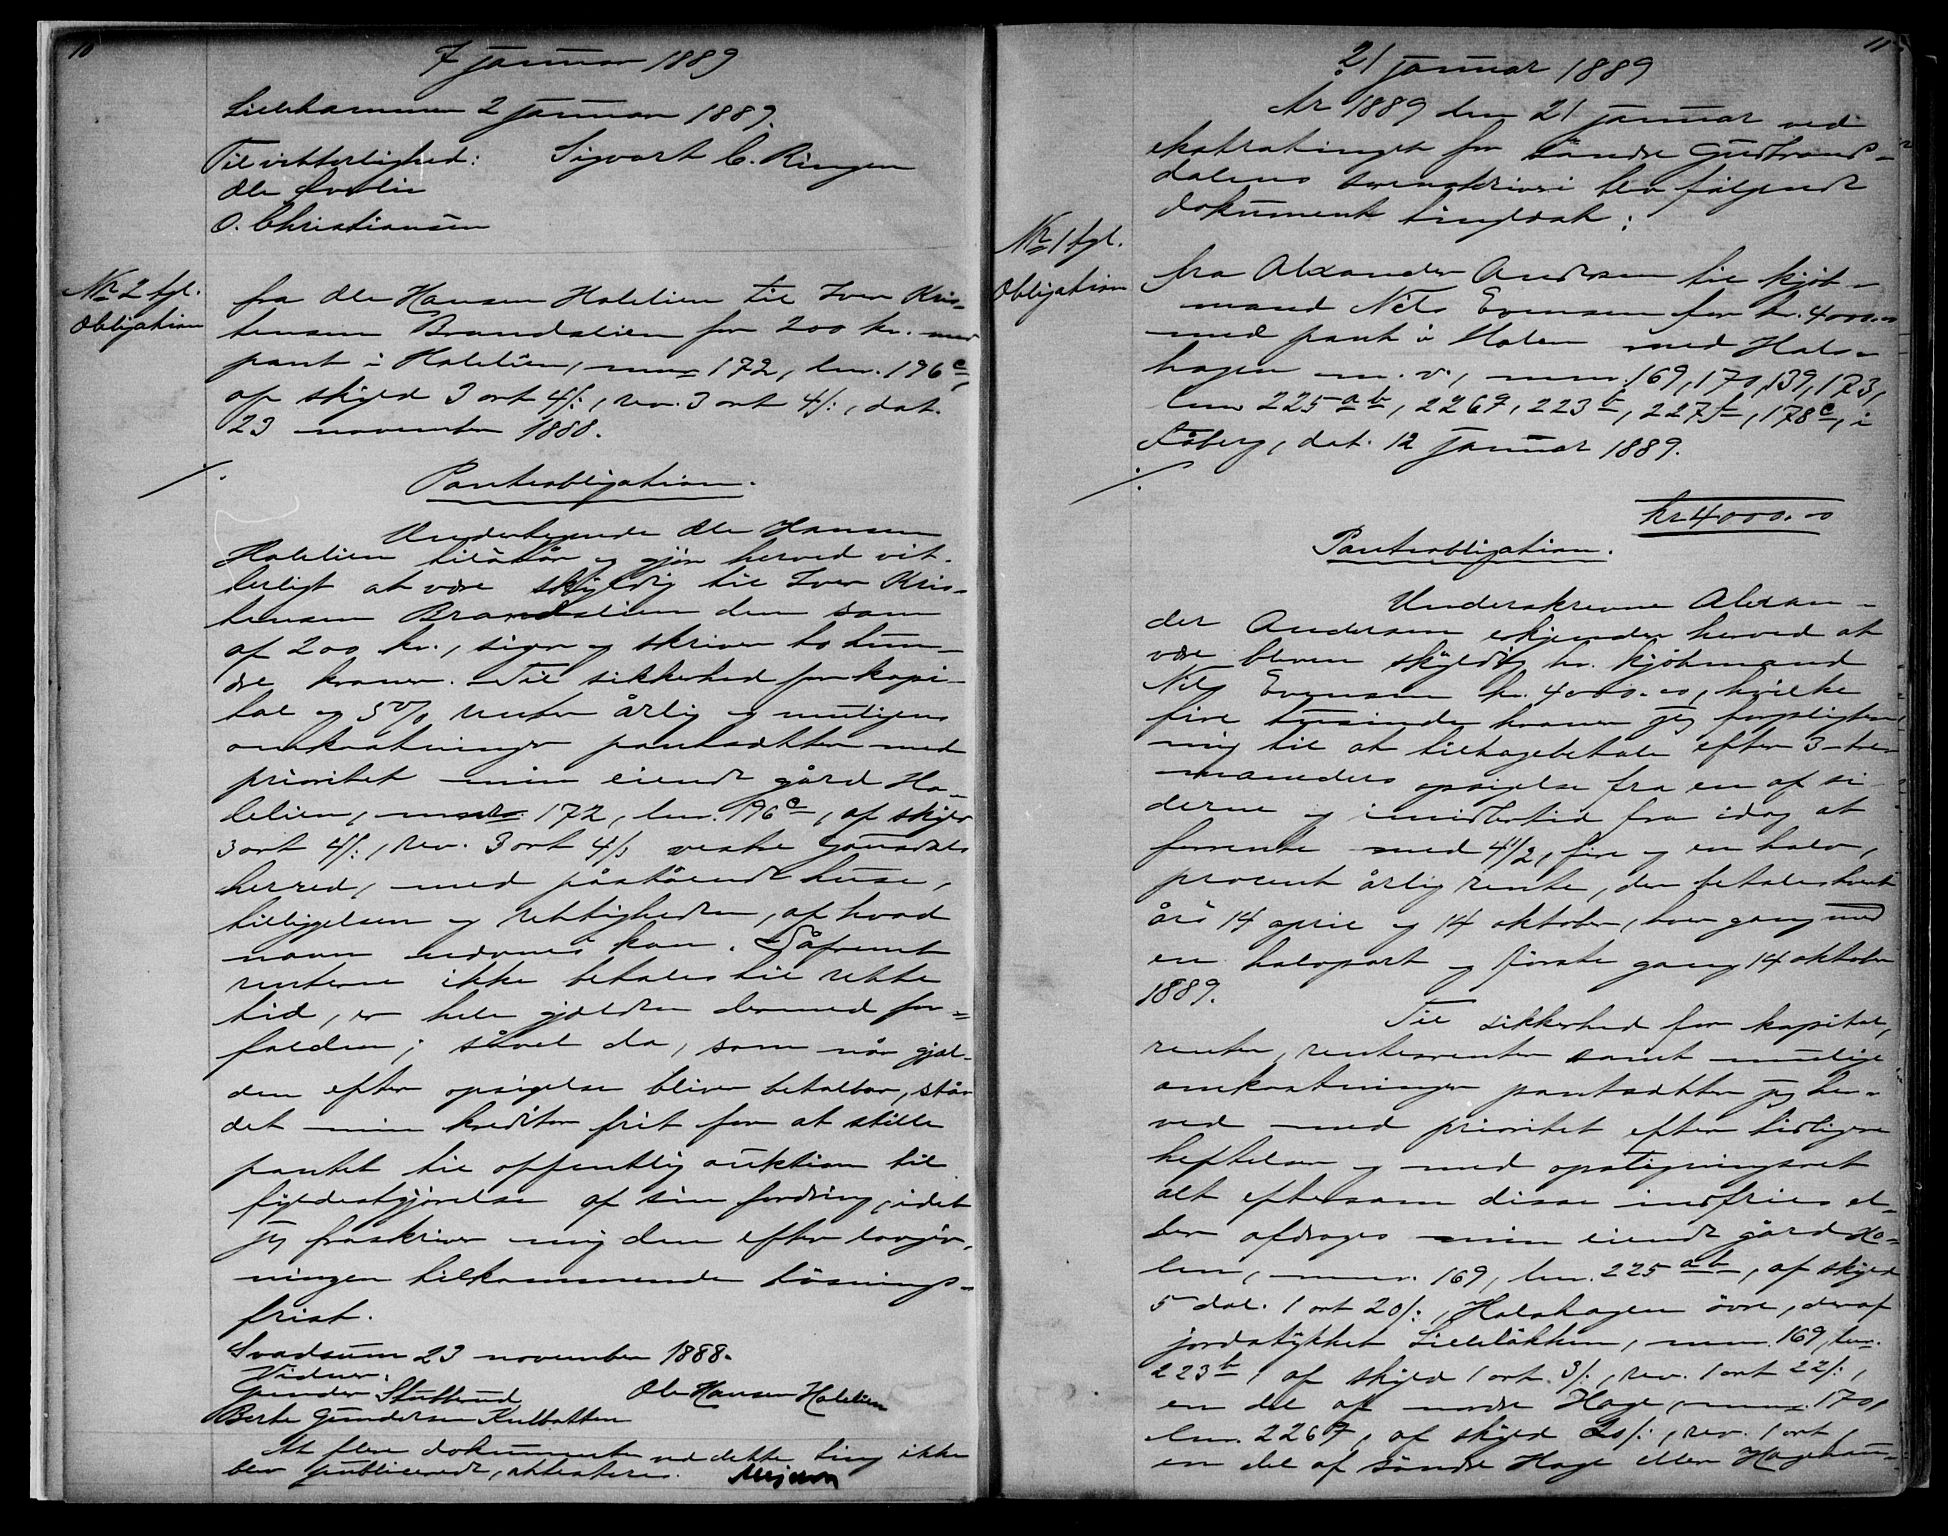 10
7 januar 1889
Lillehammer 2 januar 1889.
Til vitterlighed: Sigvart C. Ringen
Ole
O. Christiansen
No 2 tgl.
Obligation
fra Ole Hansen Holelien til Iver Kris-
tensen Brandslien for 200 kr. med
pant i Holelien, mnr 172, lnr. 196c,
af skyld 3 ort 4/:, rev. 3 ort 4/:, dat.
23 november 1888.
Panteobligation.
Undertegnede Ole Hansen
Holelien tilstår og gjør herved vit-
terligt at være skyldig til Iver Kris-
tensen Brandslien den sum
af 200 kr., siger og skriver to hun-
dre kroner. Til sikkerhed for kapi-
tal og 5% renter årlig og muligens
omkostninger pantsætter med
prioritet min eiende gård Ho-
lelien, mnr. 172, lnr. 196c, af skyld
3 ort 4/:, rev. 3 ort 4/: vestre Gausdals
herred, med påstående huse,
tilliggelser og rettigheder, af hvad
navn nævnes kan. Såfremt
renterne ikke betales til rette
tid, er hele gjælden dermed for-
falden; såvel da, som når gjæl-
den efter opsigelse bliver betalbar, står
det min kreditor frit for at stille
pantet til offentlig auktion til
fyldestgjørelse af sin fordring, idet
jeg fraskriver mig den efter lovgiv-
ningen tilkommende løsnings-
frist.
Svadsum 23 november 1888.
Vidner.
Gunder Stuttrud Ole Hansen Holelien
Berte Gundersen Kulbotten
At flere dokumenter ved dette ting ikke
blev publicerede, attesteres.
11
21 januar 1889
År 1889 den 21 januar ved
ekstratinget for søndre Gudbrands-
dalens sorenskriveri blev følgende
dokument tinglæst:
No 1 tgl.
Obligation
fra Alexander Andersen til kjøb-
mand Nils Evensen for kr. 4000.00
med pant i Holen med Hols-
hagen m. v., mnr. 169, 170, 139, 123,
lnr 225ab, 2267, 223b, 227b, 178c, i
Fåberg, dat. 12 januar 1889.
kr 4000.00
Panteobligation.
Underskrevne Alexan-
der Andersen erkjender herved at
være bleven skyldig hr. kjøbmand
Nils Evensen kr. 4000.00, hvilke
fire tusinde kroner jeg forpligter
mig til at tilbagebetale efter 3 – tre
maaneders opsigelse fra en af si-
derne og imidlertid fra idag at
forrente med 4 1/2, fire og en halv,
procent årlig rente, der betales hvert
års 14 april og 14 oktober, hver gang med
en halvpart og første gang 14 oktober
1889.
Til sikkerhed for kapital,
renter, rentesrenter samt mulige
omkostninger pantsætter jeg her-
ved med prioritet efter tidligere
heftelser og med opstigningsret
alt eftersom disse indfries el-
ler afdrages min eiende gård Ho-
len, mnr. 169, lnr. 225ab, af skyld
5 dal. 1 ort 20/:, Holshagen øvre, deraf
jordstykket Lilleløkken, mnr. 169, lnr.
223b, af skyld 1 ort 3/:, rev. 1 ort 22/:,
en del af nordre Hage, mnr. 170,
lnr. 2267, af skyld 20/:, rev. 1 ort,
en del af søndre Hage eller Hagehau-